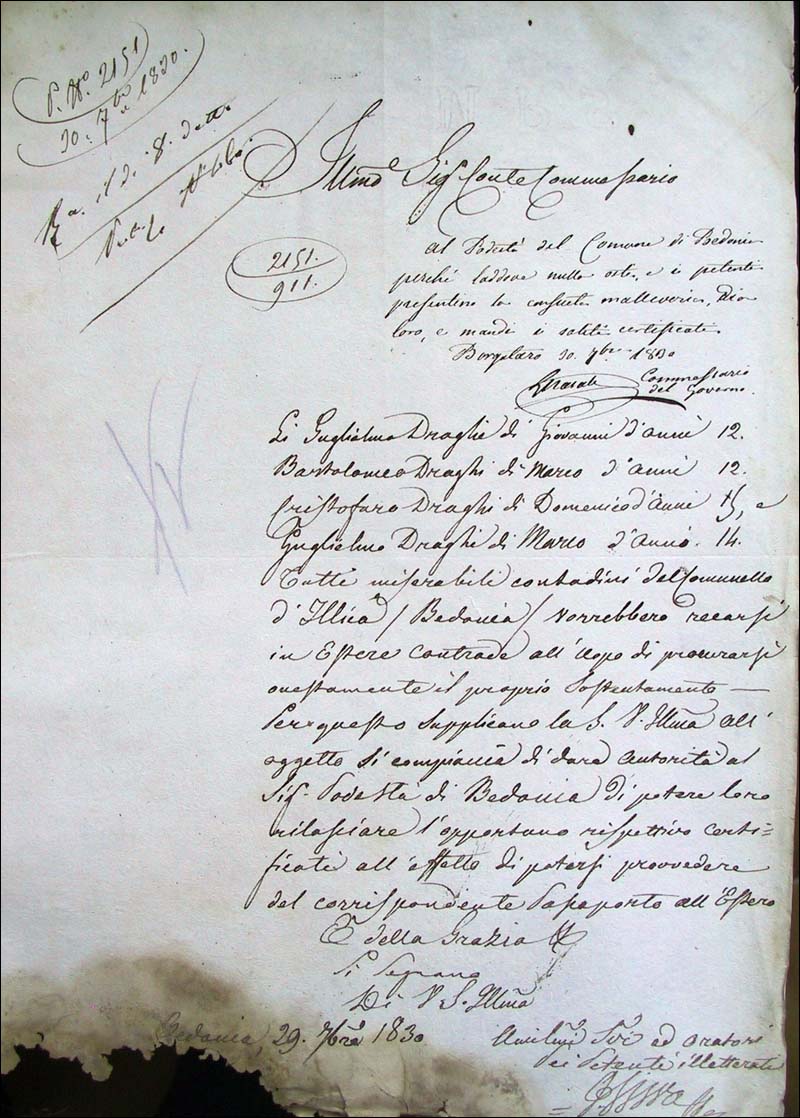 P. N.º 2151
30. 7bre 1830.
il dì 8. detto
Illmo Sigr Conte Commessario
2151.
911.
Al Podestà del Comune di Bedonia
perché laddove nulla osti, e i petenti
presentino la consueta malleveria,
loro, e mandi i soliti certificati
Borgotaro 30. 7bre 1830
Commessario
del Governo.
Li Guglielmo Draghi di Giovanni d'anni 12.
Bartolomeo Draghi di Marco d'anni 12.
Cristoforo Draghi di Domenico d'anni e
Guglielmo Draghi di Marco d'anni. 14.
Tutti miserabili contadini del Comunello
d'Illica / Bedonia / vorrebbero recarsi
in Estere Contrade all'uopo di procurarsi
onestamente il proprio Sostentamento —
Per questo supplicano la S. V. Illma all'
oggetto si compiaccia di dare autorità al
Sigr Podestà di Bedonia di potere loro
rilasciare l'opportuno rispettivo certi=
ficati all'effetto di potersi provvedere
del corrispondente Passaporto all'Estero
E della Grazia
Si Segnano
Di V. S. Illma
Bedonia, 29. 7bre 1830
Umilmi Svi ed Oratori
Pei Petenti illetterati